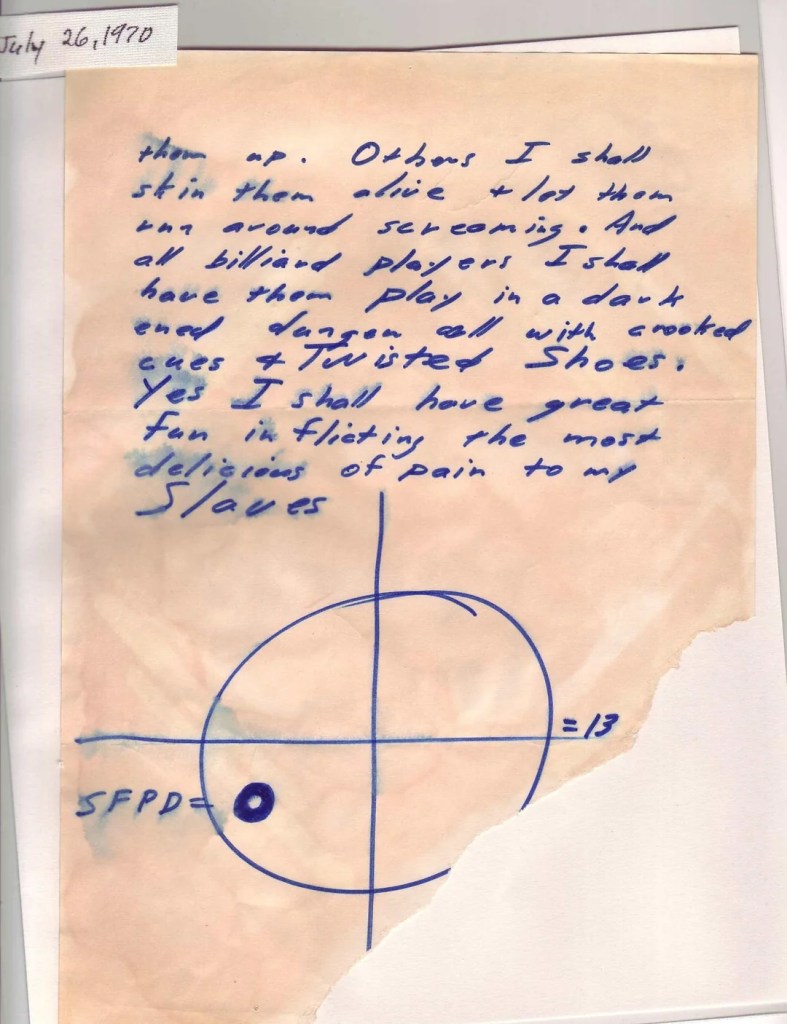 July 26, 1970
them up. Others I shall
skin them alive + let them
run around screaming. And
all billiard players I shall
have them play in a dark
ened dungen cell with crooked
cues + Twisted Shoes.
Yes I shall have great
fun inflicting the most
delicious of pain to my
Slaves
= 13
SFPD = 0